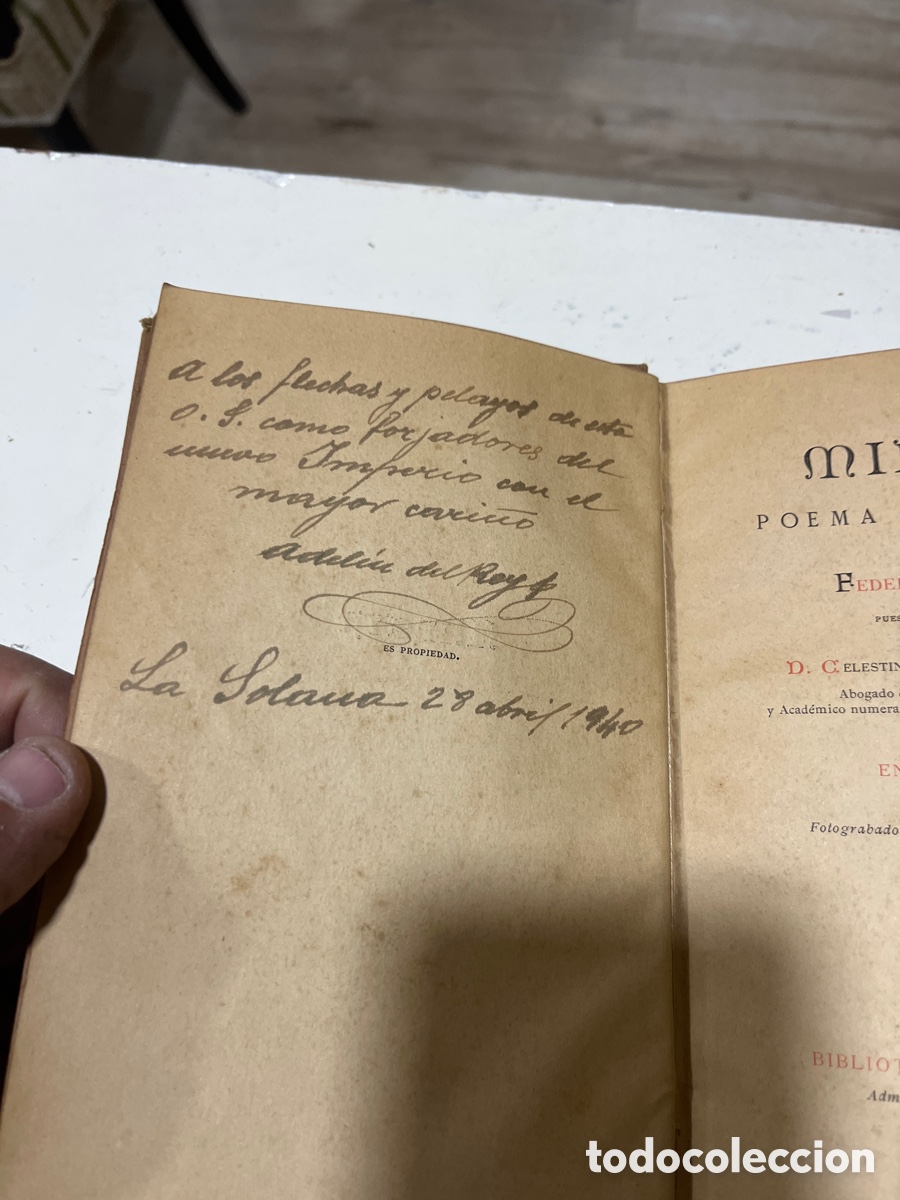 A los flechas y pelayos de esta
O. S. como forjadores del
nuevo Imperio con el
mayor cariño
Adelín del Rey
ES PROPIEDAD.
La Solana 28 abril 1940
MI
POEMA
FEDE
PUES
D. CELESTIN
Abogado
y Académico numera
EN
Fotograbado
BIBLIOT
Adm
todocoleccion